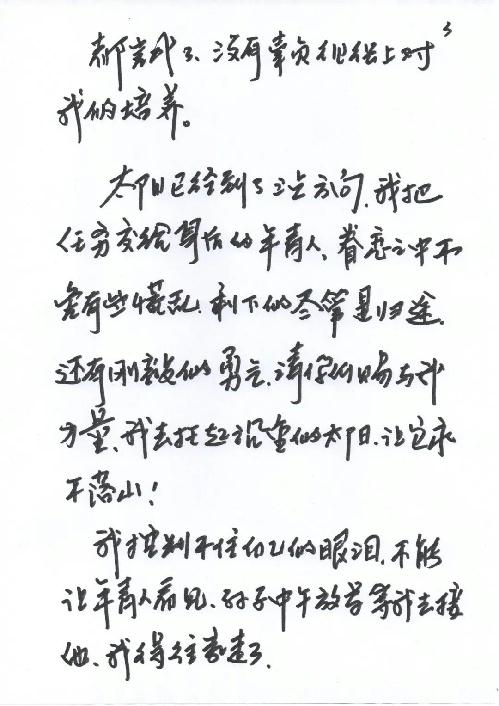 3
都完成了、没有辜负组织上对
我的培养。
太阳已经到了三点方向，我把
任务交给身后的年青人、眷恋之中不
免有些慌乱、剩下的尽管是归途，
还有刚毅的勇气、请你们赐与我
力量、我去托起沿金的太阳、让它永
不落山！
我控制不住自己的眼泪、不能
让年青人看见、孙子中午放学等我去接
他、我得往走了。